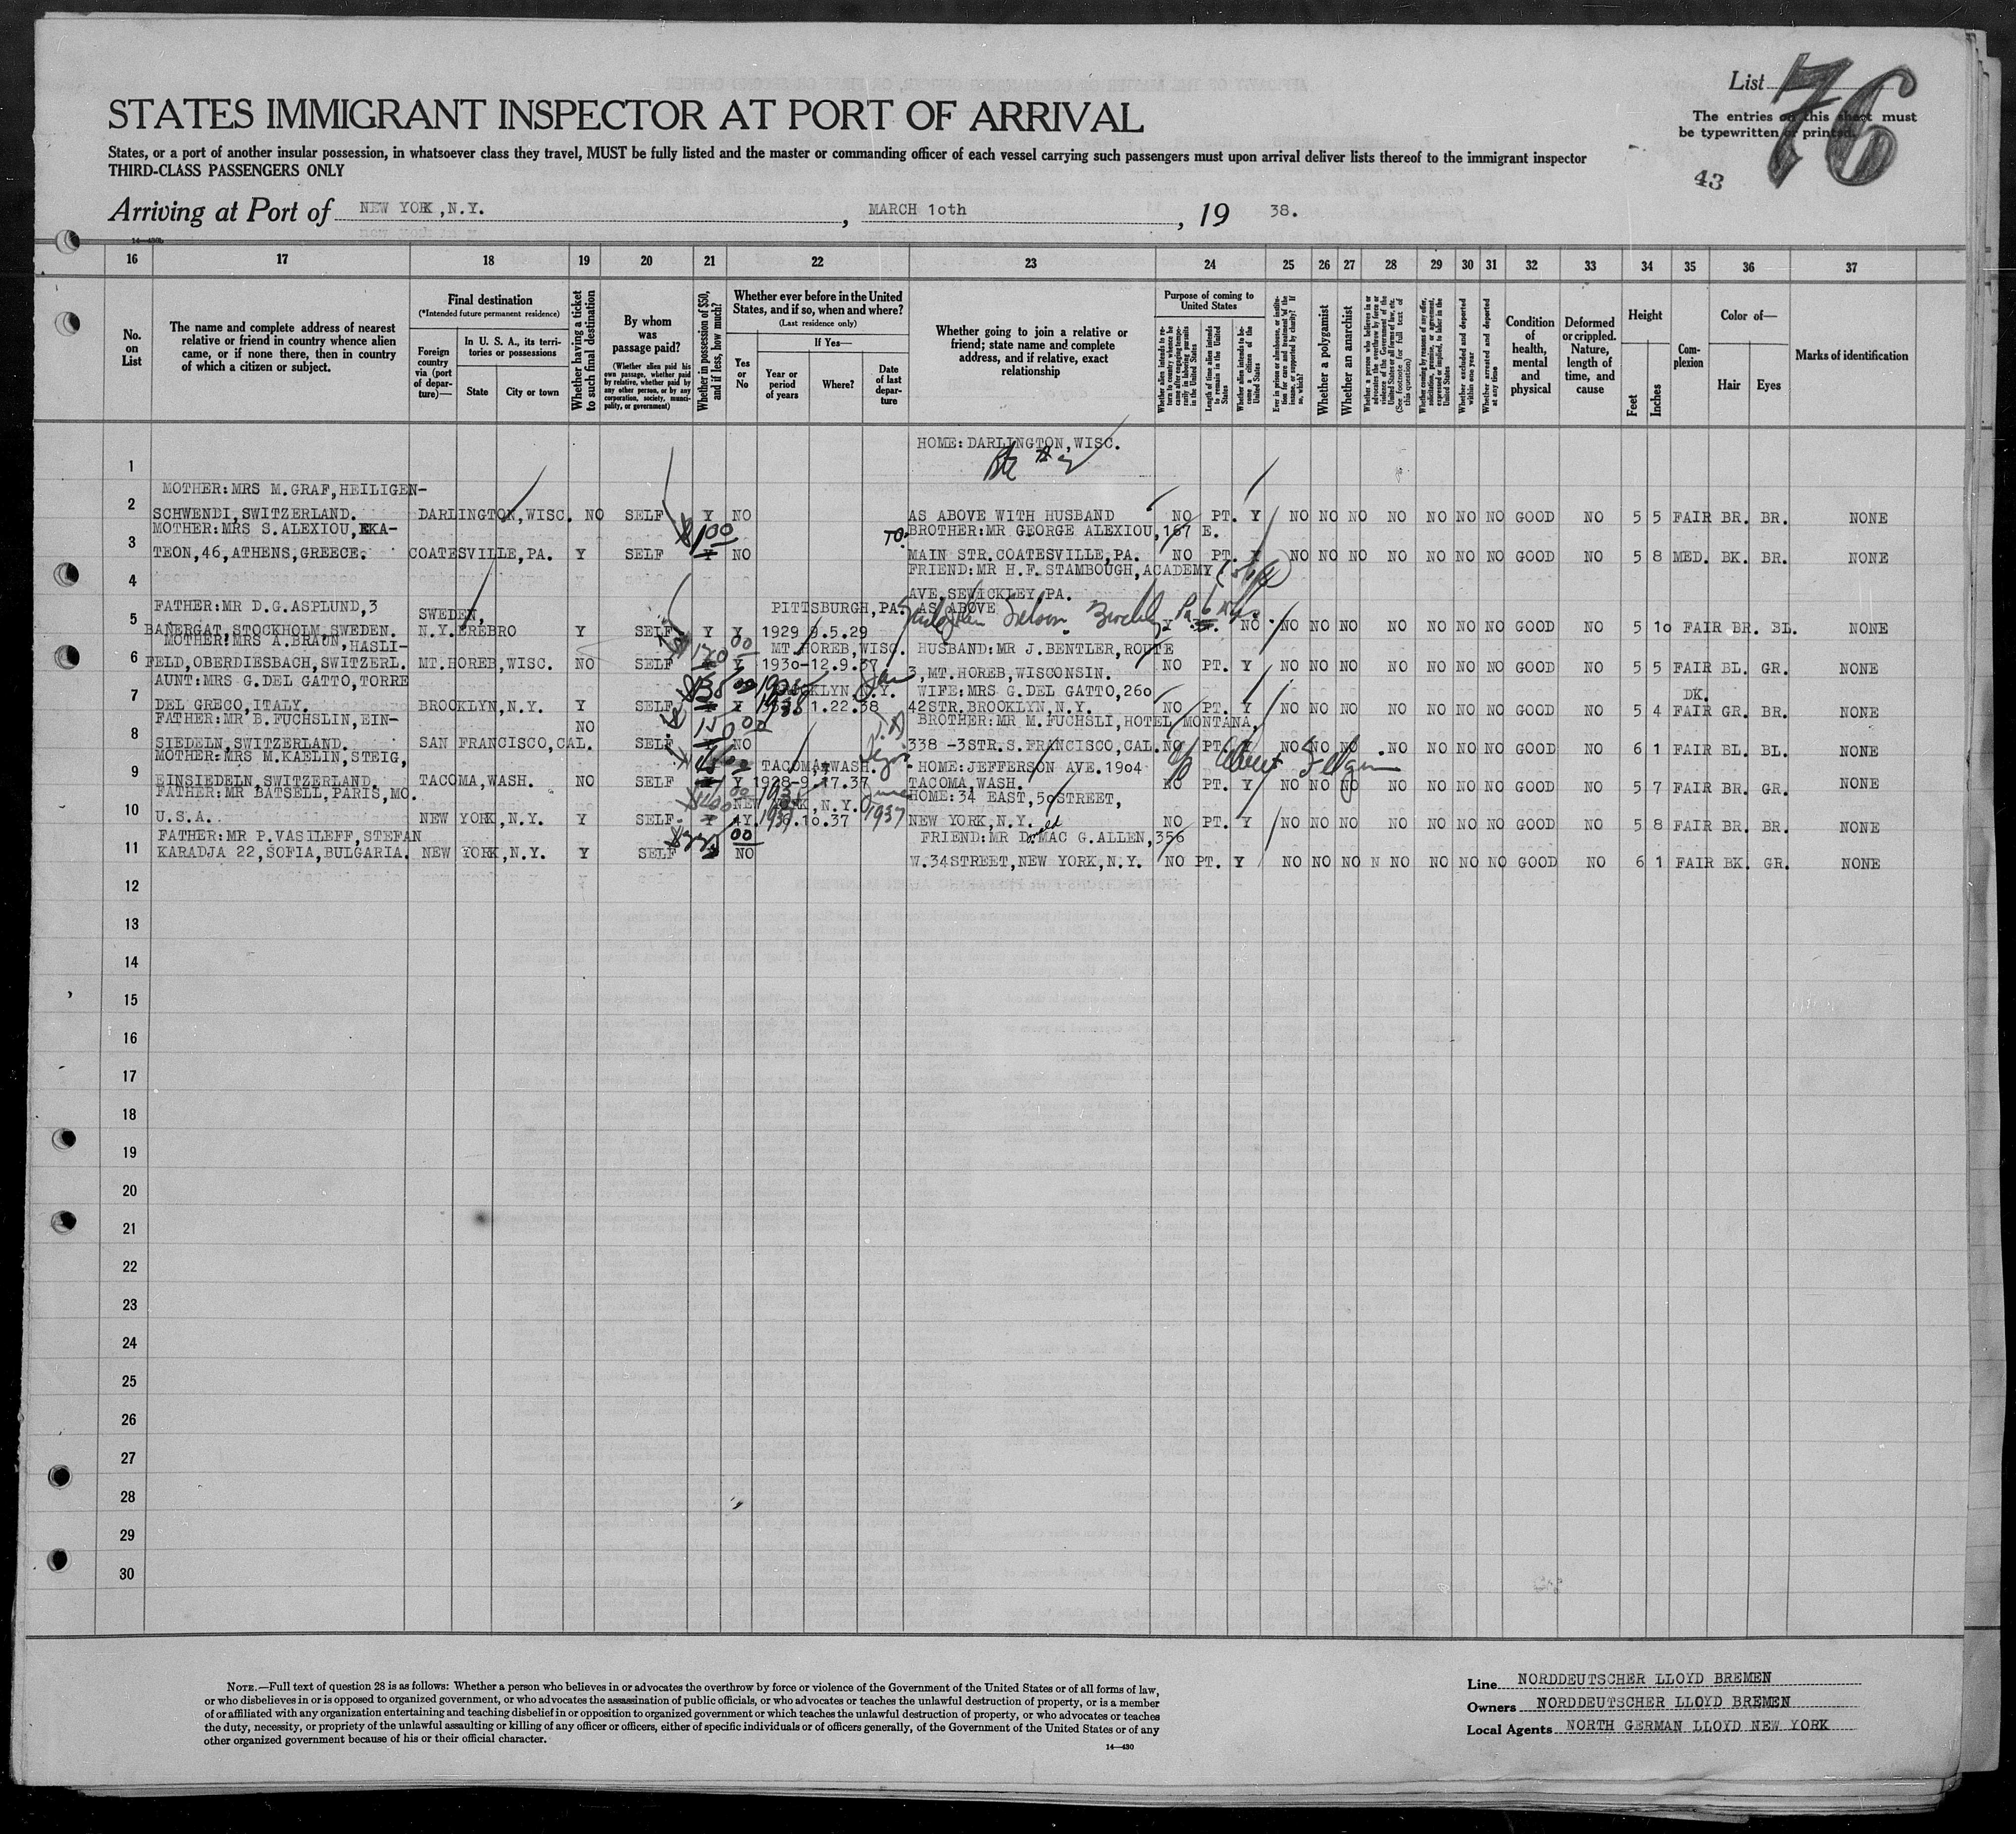 List 76
STATES IMMIGRANT INSPECTOR AT PORT OF ARRIVAL
The entries on this sheet must
be typewritten or printed.
States, or a port of another insular possession, in whatsoever class they travel, MUST be fully listed and the master or commanding officer of each vessel carrying such passengers must upon arrival deliver lists thereof to the immigrant inspector
THIRD-CLASS PASSENGERS ONLY
43
Arriving at Port of NEW YORK, N.Y. , MARCH 10th , 19 38.
14-430b
16 17 18 19 20 21 22 23 24 25 26 27 28 29 30 31 32 33 34 35 36 37
No. on List
The name and complete address of nearest relative or friend in country whence alien came, or if none there, then in country of which a citizen or subject.
Final destination
(*Intended future permanent residence)
Foreign country via (port of departure)—
In U. S. A., its territories or possessions
State
City or town
Whether having a ticket to such final destination
By whom was passage paid?
(Whether alien paid his own passage, whether paid by relative, whether paid by any other person, or by any corporation, society, municipality, or government)
Whether in possession of $50, and if less, how much?
Whether ever before in the United States, and if so, when and where?
(Last residence only)
Yes or No
If Yes—
Year or period of years
Where?
Date of last departure
Whether going to join a relative or friend; state name and complete address, and if relative, exact relationship
Purpose of coming to United States
Whether alien intends to return to country whence he came after engaging temporarily in laboring pursuits in the United States
Length of time alien intends to remain in the United States
Whether alien intends to become a citizen of the United States
Ever in prison or almshouse, or institution for care and treatment of the insane, or supported by charity? If so, which?
Whether a polygamist
Whether an anarchist
Whether a person who believes in or advocates the overthrow by force or violence of the Government of the United States or all forms of law, etc. (See footnote for full text of this question)
Whether coming by reasons of any offer, solicitation, promise, or agreement, expressed or implied, to labor in the United States
Whether excluded and deported within one year
Whether arrested and deported at any time
Condition of health, mental and physical
Deformed or crippled. Nature, length of time, and cause
Height
Feet
Inches
Complexion
Color of—
Hair
Eyes
Marks of identification
1 HOME: DARLINGTON, WISC.
2 MOTHER: MRS M. GRAF, HEILIGEN-
SCHWENDI, SWITZERLAND. DARLINGTON, WISC. NO SELF Y NO AS ABOVE WITH HUSBAND NO PT. Y NO NO NO NO NO NO NO GOOD NO 5 5 FAIR BR. BR. NONE
3 MOTHER: MRS S. ALEXIOU, EKA- $100 TO: BROTHER: MR GEORGE ALEXIOU, 167 E.
TEON, 46, ATHENS, GREECE. COATESVILLE, PA. Y SELF Y NO MAIN STR. COATESVILLE, PA. NO PT. Y NO NO NO NO NO NO NO GOOD NO 5 8 MED. BK. BR. NONE
4 FRIEND: MR H.F. STAMBOUGH, ACADEMY
AVE. SEWICKLEY, PA.
5 FATHER: MR D.G. ASPLUND, 3 SWEDEN, PITTSBURGH, PA. AS ABOVE
BANERGAT, STOCKHOLM, SWEDEN. N.Y. EREBRO Y SELF Y Y 1929 9.5.29 Y NO NO NO NO NO NO NO NO GOOD NO 5 10 FAIR BR. BL. NONE
6 MOTHER: MRS A. BRAUN, HASLI- $120 00 MT. HOREB, WISC. HUSBAND: MR J. BENTLER, ROUTE
FELD, OBERDIESBACH, SWITZERL. MT. HOREB, WISC. NO SELF Y Y 1930-12.9.37 3, MT. HOREB, WISCONSIN. NO PT. Y NO NO NO NO NO NO NO GOOD NO 5 5 FAIR BL. GR. NONE
7 AUNT: MRS G. DEL GATTO, TORRE BROOKLYN N.Y. WIFE: MRS G. DEL GATTO, 260 DK.
DEL GRECO, ITALY. BROOKLYN, N.Y. Y SELF Y Y 1938 1.22.38 42STR. BROOKLYN, N.Y. NO PT. Y NO NO NO NO NO NO NO GOOD NO 5 4 FAIR GR. BR. NONE
8 FATHER: MR B. FUCHSLIN, EIN- NO BROTHER: MR M. FUCHSLI, HOTEL MONTANA,
SIEDELN, SWITZERLAND. SAN FRANCISCO, CAL. SELF Y NO 338 -3STR. S. FRANCISCO, CAL. NO PT. Y NO NO NO NO NO NO NO GOOD NO 6 1 FAIR BL. BL. NONE
9 MOTHER: MRS M. KAELIN, STEIG, TACOMA, WASH. HOME: JEFFERSON AVE. 1904
EINSIEDELN, SWITZERLAND. TACOMA, WASH. NO SELF Y Y 1928-9.17.37 TACOMA, WASH. NO PT. Y NO NO NO NO NO NO NO GOOD NO 5 7 FAIR BR. GR. NONE
10 FATHER: MR BATSELL, PARIS, MO. NEW YORK, N.Y. June 1937 HOME: 34 EAST, 50STREET,
U.S.A. NEW YORK, N.Y. Y SELF Y Y 6.10.37 NEW YORK, N.Y. NO PT. Y NO NO NO NO NO NO NO GOOD NO 5 8 FAIR BR. BR. NONE
11 FATHER: MR P. VASILEFF, STEFAN FRIEND: MR D. MAC G. ALLEN, 356
KARADJA 22, SOFIA, BULGARIA. NEW YORK, N.Y. Y SELF NO W. 34STREET, NEW YORK, N.Y. NO PT. Y NO NO NO N NO NO NO NO GOOD NO 6 1 FAIR BK. GR. NONE
12
13
14
15
16
17
18
19
20
21
22
23
24
25
26
27
28
29
30
NOTE.—Full text of question 28 is as follows: Whether a person who believes in or advocates the overthrow by force or violence of the Government of the United States or of all forms of law,
or who disbelieves in or is opposed to organized government, or who advocates the assassination of public officials, or who advocates or teaches the unlawful destruction of property, or is a member
of or affiliated with any organization entertaining and teaching disbelief in or opposition to organized government or which teaches the unlawful destruction of property, or who advocates or teaches
the duty, necessity, or propriety of the unlawful assaulting or killing of any officer or officers, either of specific individuals or of officers generally, of the Government of the United States or of any
other organized government because of his or their official character.
14—430
Line NORDDEUTSCHER LLOYD BREMEN
Owners NORDDEUTSCHER LLOYD BREMEN
Local Agents NORTH GERMAN LLOYD NEW YORK